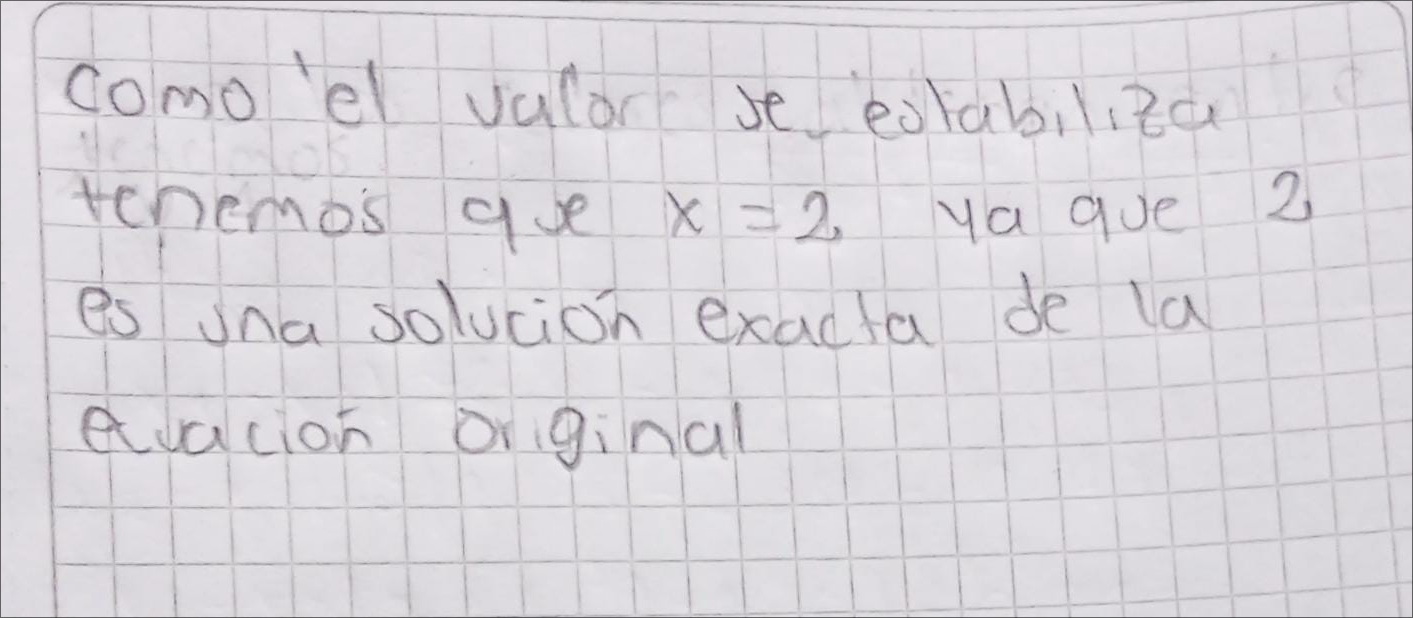 como el valor se estabiliza
tenemos que x = 2 ya que 2
es una solución exacta de la
ecuación original